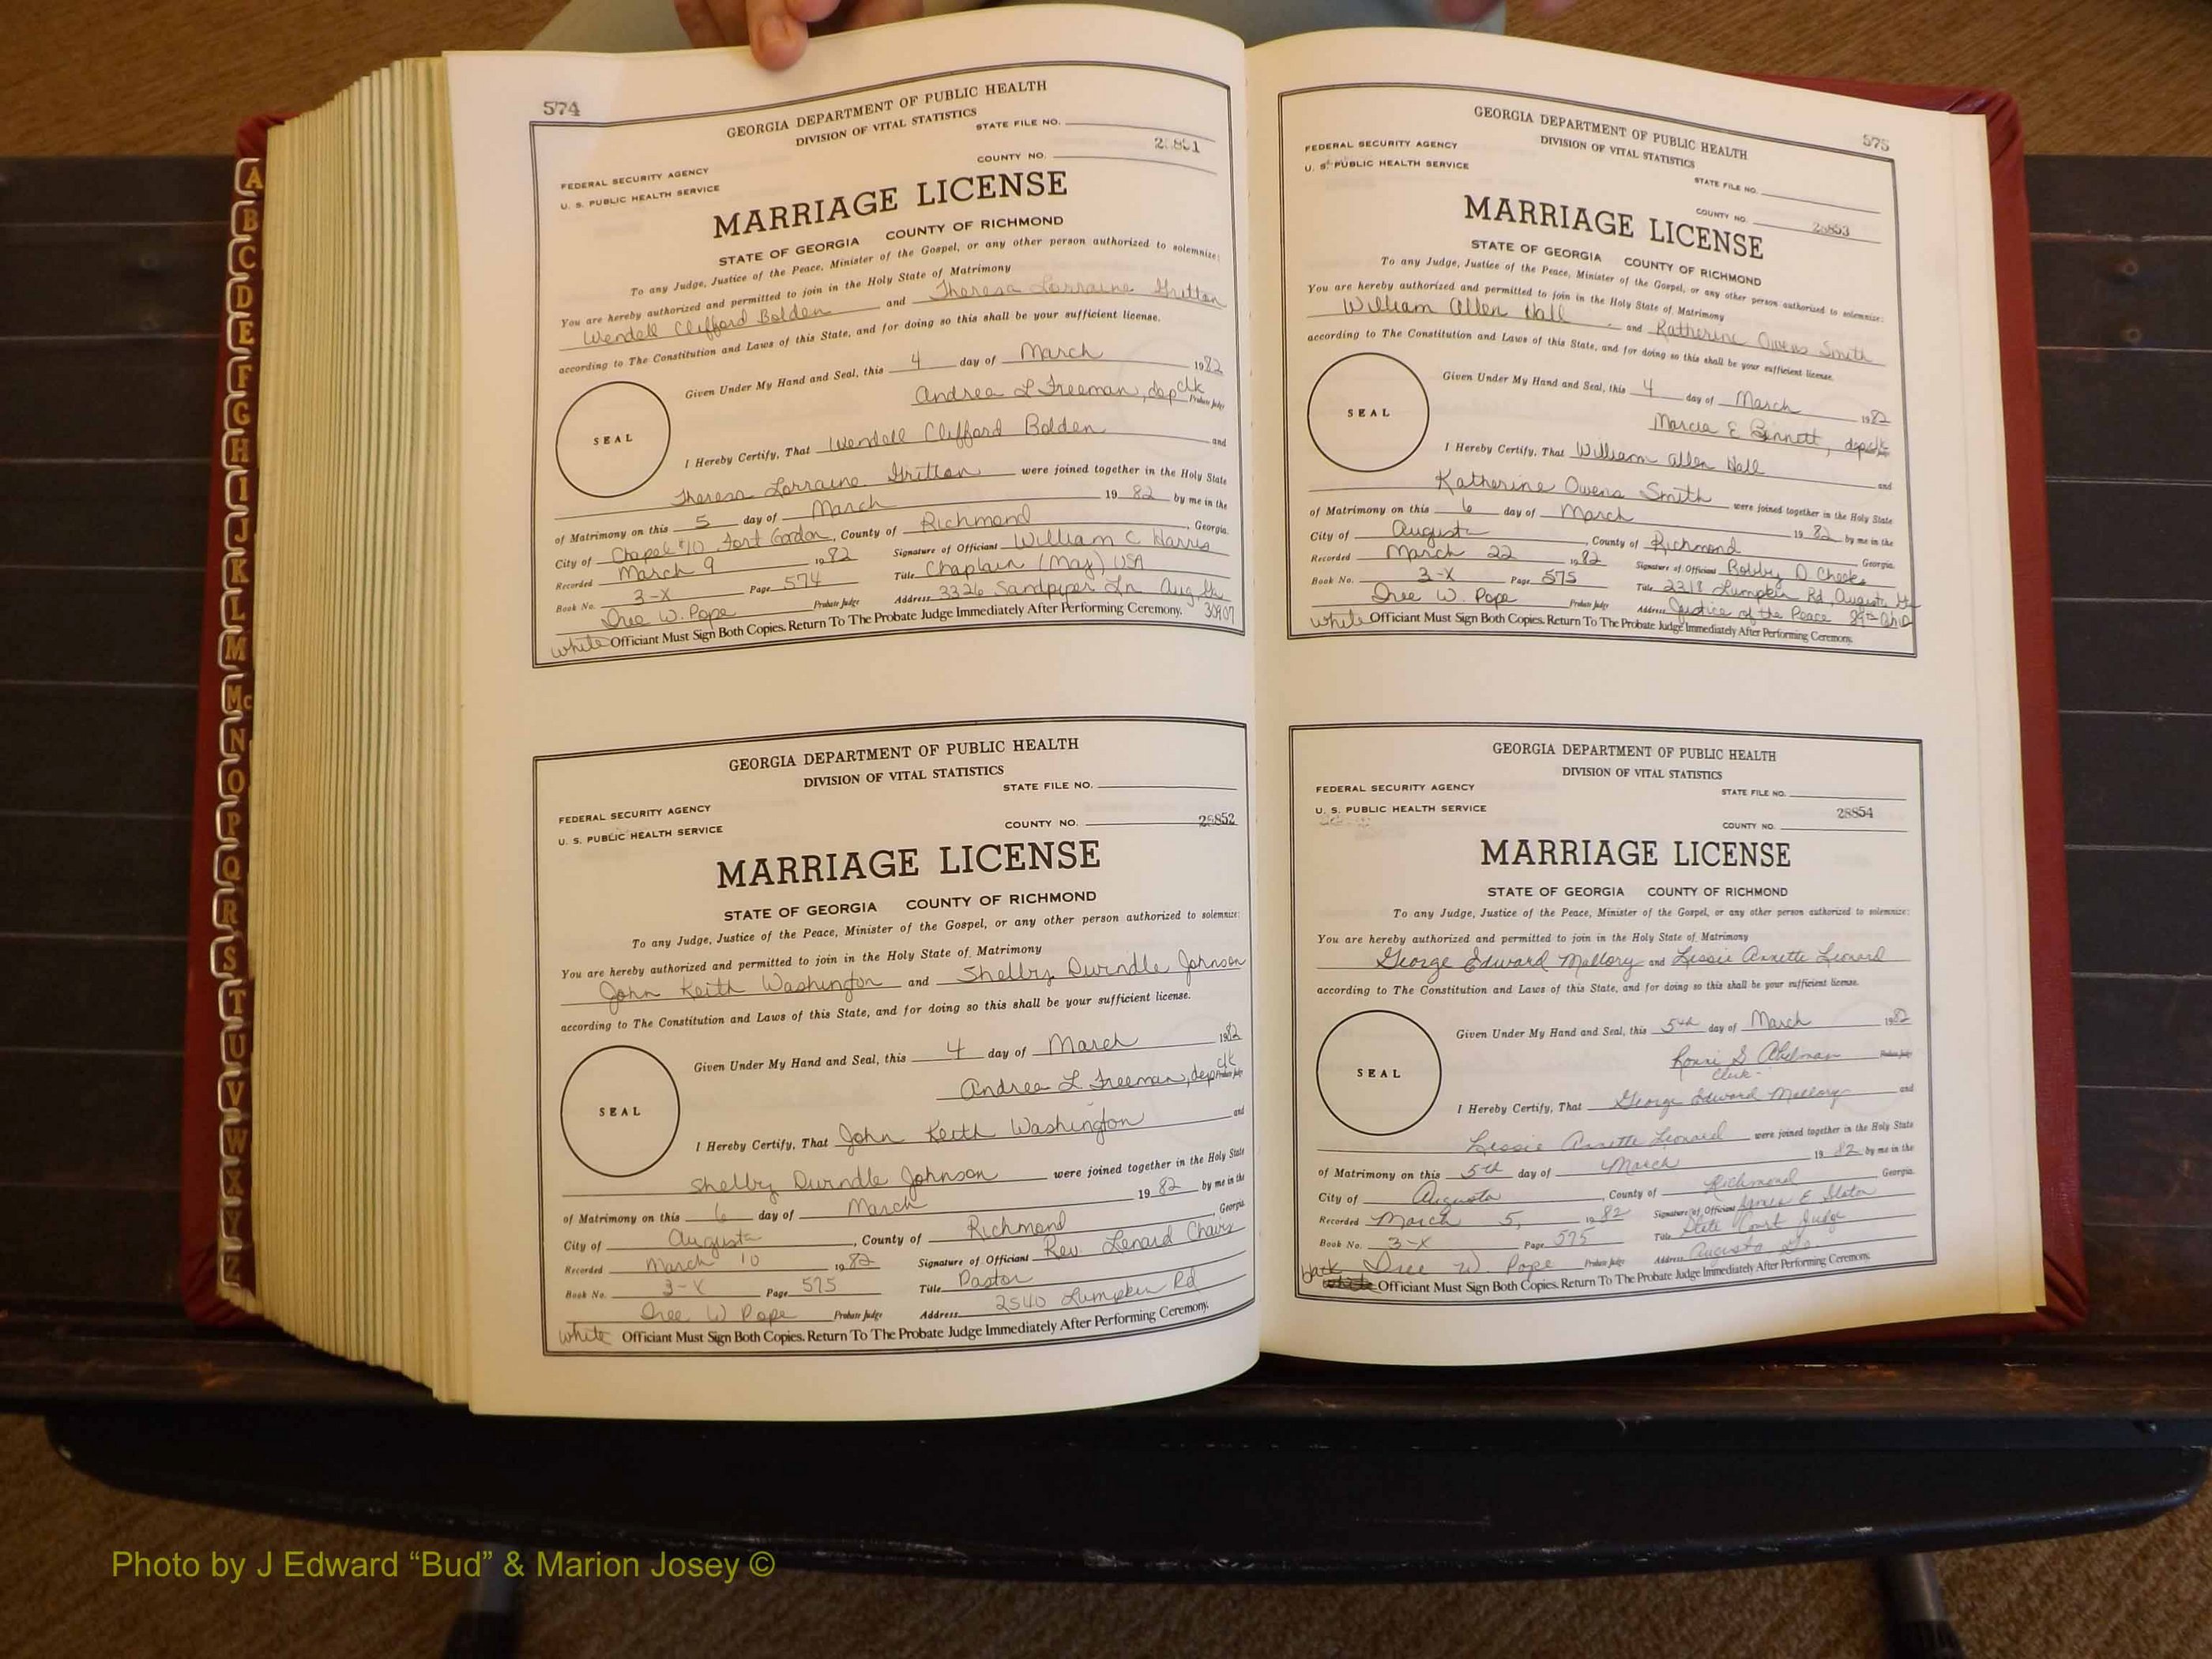 574
GEORGIA DEPARTMENT OF PUBLIC HEALTH
DIVISION OF VITAL STATISTICS
STATE FILE NO.
FEDERAL SECURITY AGENCY
U. S. PUBLIC HEALTH SERVICE
COUNTY NO.
MARRIAGE LICENSE
STATE OF GEORGIA COUNTY OF RICHMOND
To any Judge, Justice of the Peace, Minister of the Gospel, or any other person authorized to solemnize:
You are hereby authorized and permitted to join in the Holy State of Matrimony
Wendell Clifford Bolden and Theresa Lorraine
according to The Constitution and Laws of this State, and for doing so this shall be your sufficient license.
Given Under My Hand and Seal, this 4 day of March 1982
Andrea L Freeman, dep clk Probate Judge
SEAL
I Hereby Certify, That Wendell Clifford Bolden and
Theresa Lorraine were joined together in the Holy State
of Matrimony on this 5 day of March 19 82 by me in the
City of Chapel #10 Fort Gordon, County of Richmond, Georgia.
Recorded March 9 1982 Signature of Officiant William C Harris
Book No. 3-X Page 574 Title Chaplain (Maj) USA
Dree W. Pope Probate Judge Address 3326 Sandpiper Ln Aug. Ga 30907
white Officiant Must Sign Both Copies. Return To The Probate Judge Immediately After Performing Ceremony.
GEORGIA DEPARTMENT OF PUBLIC HEALTH
DIVISION OF VITAL STATISTICS
STATE FILE NO.
FEDERAL SECURITY AGENCY
U. S. PUBLIC HEALTH SERVICE
COUNTY NO. 28852
MARRIAGE LICENSE
STATE OF GEORGIA COUNTY OF RICHMOND
To any Judge, Justice of the Peace, Minister of the Gospel, or any other person authorized to solemnize:
You are hereby authorized and permitted to join in the Holy State of Matrimony
John Keith Washington and Shelby Durndle Johnson
according to The Constitution and Laws of this State, and for doing so this shall be your sufficient license.
Given Under My Hand and Seal, this 4 day of March 1982
Andrea L. Freeman, dep clk Probate Judge
SEAL
I Hereby Certify, That John Keith Washington and
Shelby Durndle Johnson were joined together in the Holy State
of Matrimony on this 6 day of March 19 82 by me in the
City of Augusta, County of Richmond, Georgia
Recorded March 10 1982 Signature of Officiant Rev. Lenard Chavis
Book No. 3-X Page 575 Title Pastor
Dree W Pope Probate Judge Address 2540 Lumpkin Rd
white Officiant Must Sign Both Copies. Return To The Probate Judge Immediately After Performing Ceremony.
575
GEORGIA DEPARTMENT OF PUBLIC HEALTH
DIVISION OF VITAL STATISTICS
FEDERAL SECURITY AGENCY
U. S. PUBLIC HEALTH SERVICE
STATE FILE NO.
COUNTY NO. 28853
MARRIAGE LICENSE
STATE OF GEORGIA COUNTY OF RICHMOND
To any Judge, Justice of the Peace, Minister of the Gospel, or any other person authorized to solemnize:
You are hereby authorized and permitted to join in the Holy State of Matrimony
William Allen Hall and Katherine Owens Smith
according to The Constitution and Laws of this State, and for doing so this shall be your sufficient license.
Given Under My Hand and Seal, this 4 day of March 1982
Marcia E Bennett, dep clk
SEAL
I Hereby Certify, That William Allen Hall and
Katherine Owens Smith were joined together in the Holy State
of Matrimony on this 6 day of March 19 82 by me in the
City of Augusta, County of Richmond Georgia
Recorded March 22 1982 Signature of Officiant Bobby D Cheek
Book No. 3-X Page 575 Title 2318 Lumpkin Rd, Augusta Ga
Dree W. Pope Probate Judge Address Justice of the Peace
white Officiant Must Sign Both Copies. Return To The Probate Judge Immediately After Performing Ceremony.
GEORGIA DEPARTMENT OF PUBLIC HEALTH
DIVISION OF VITAL STATISTICS
FEDERAL SECURITY AGENCY
STATE FILE NO.
U. S. PUBLIC HEALTH SERVICE
COUNTY NO. 28854
MARRIAGE LICENSE
STATE OF GEORGIA COUNTY OF RICHMOND
To any Judge, Justice of the Peace, Minister of the Gospel, or any other person authorized to solemnize:
You are hereby authorized and permitted to join in the Holy State of Matrimony
George Edward Mallory and Lessie Annette Leonard
according to The Constitution and Laws of this State, and for doing so this shall be your sufficient license.
Given Under My Hand and Seal, this 5th day of March 1982
Ronni S Abelman Probate Judge
Clerk
SEAL
I Hereby Certify, That George Edward Mallory and
Lessie Annette Leonard were joined together in the Holy State
of Matrimony on this 5th day of March 19 82 by me in the
City of Augusta, County of Richmond Georgia
Recorded March 5, 1982 Signature of Officiant James E Slaton
Book No. 3-X Page 575 Title State Court Judge
Dree W. Pope Probate Judge Address Augusta, Ga.
back Officiant Must Sign Both Copies. Return To The Probate Judge Immediately After Performing Ceremony.
A
B
C
D
E
F
G
H
I
J
K
L
M
Mc
N
O
P
Q
R
S
T
U
V
W
X
Y
Z
Photo by J Edward “Bud” & Marion Josey ©